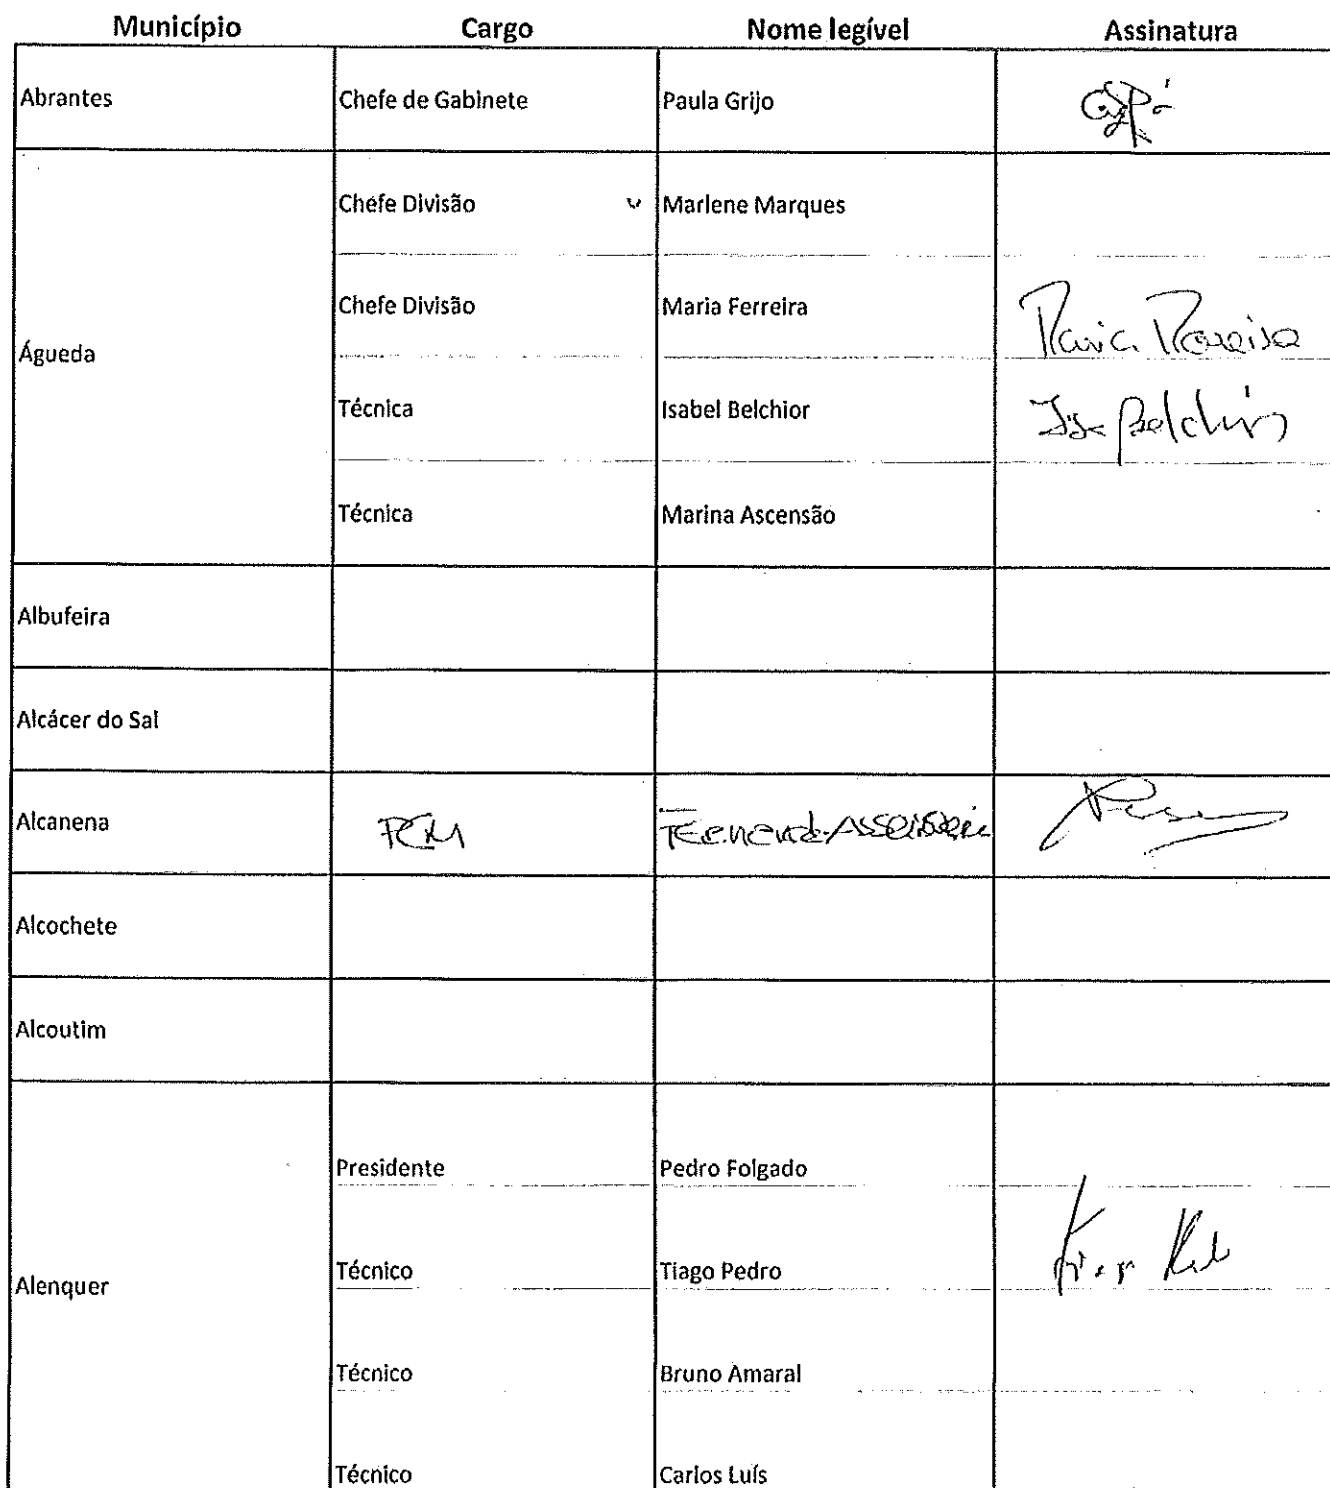 Município Cargo Nome legível Assinatura
Abrantes Chefe de Gabinete Paula Grijo
Chefe Divisão Marlene Marques
Chefe Divisão Maria Ferreira
Águeda
Técnica Isabel Belchior Isa Belchior
Técnica Marina Ascensão
Albufeira
Alcácer do Sal
Alcanena PCM
Alcochete
Alcoutim
Presidente Pedro Folgado
Técnico Tiago Pedro
Alenquer
Técnico Bruno Amaral
Técnico Carlos Luís